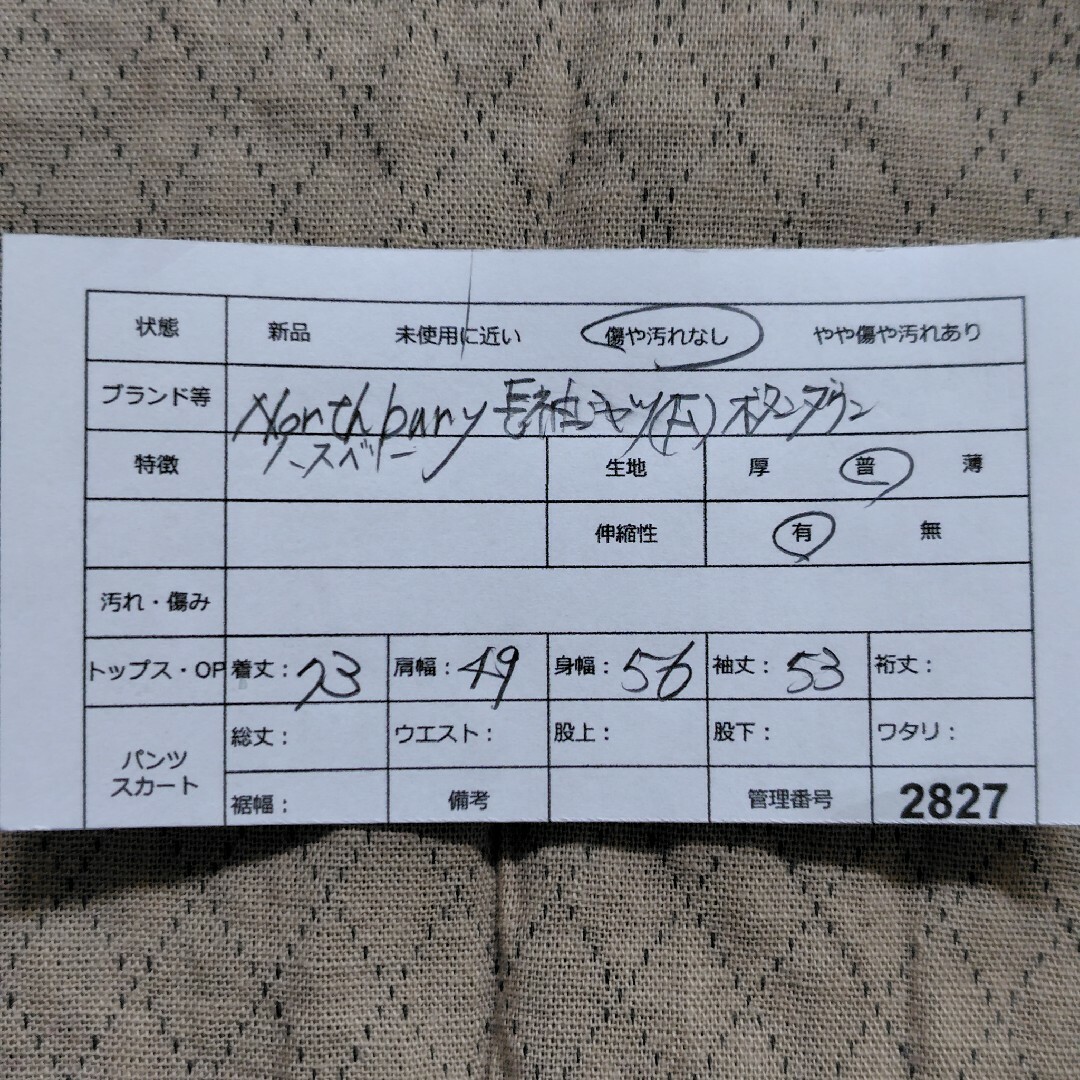 状態 新品 未使用に近い 傷や汚れなし やや傷や汚れあり
ブランド等 Northbury 長袖シャツ() ボタンダウン
ノースベリー
特徴 生地 厚 普 薄
伸縮性 有 無
汚れ・傷み
トップス・OP 着丈：73 肩幅：49 身幅：56 袖丈：53 裄丈：
パンツ スカート 総丈： ウエスト： 股上： 股下： ワタリ：
裾幅： 備考 管理番号 2827